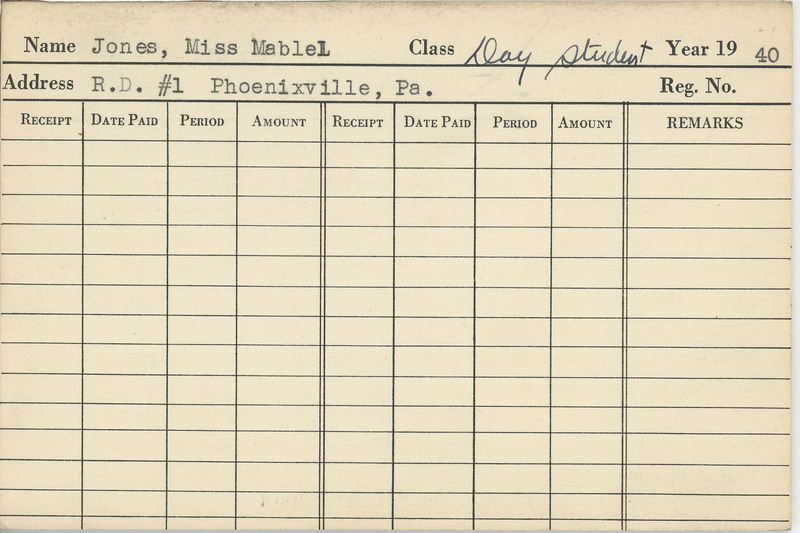 Name Jones, Miss MableL Class Day Student Year 19 40
Address R.D. #1 Phoenixville, Pa. Reg. No.
RECEIPT DATE PAID PERIOD AMOUNT RECEIPT DATE PAID PERIOD AMOUNT REMARKS